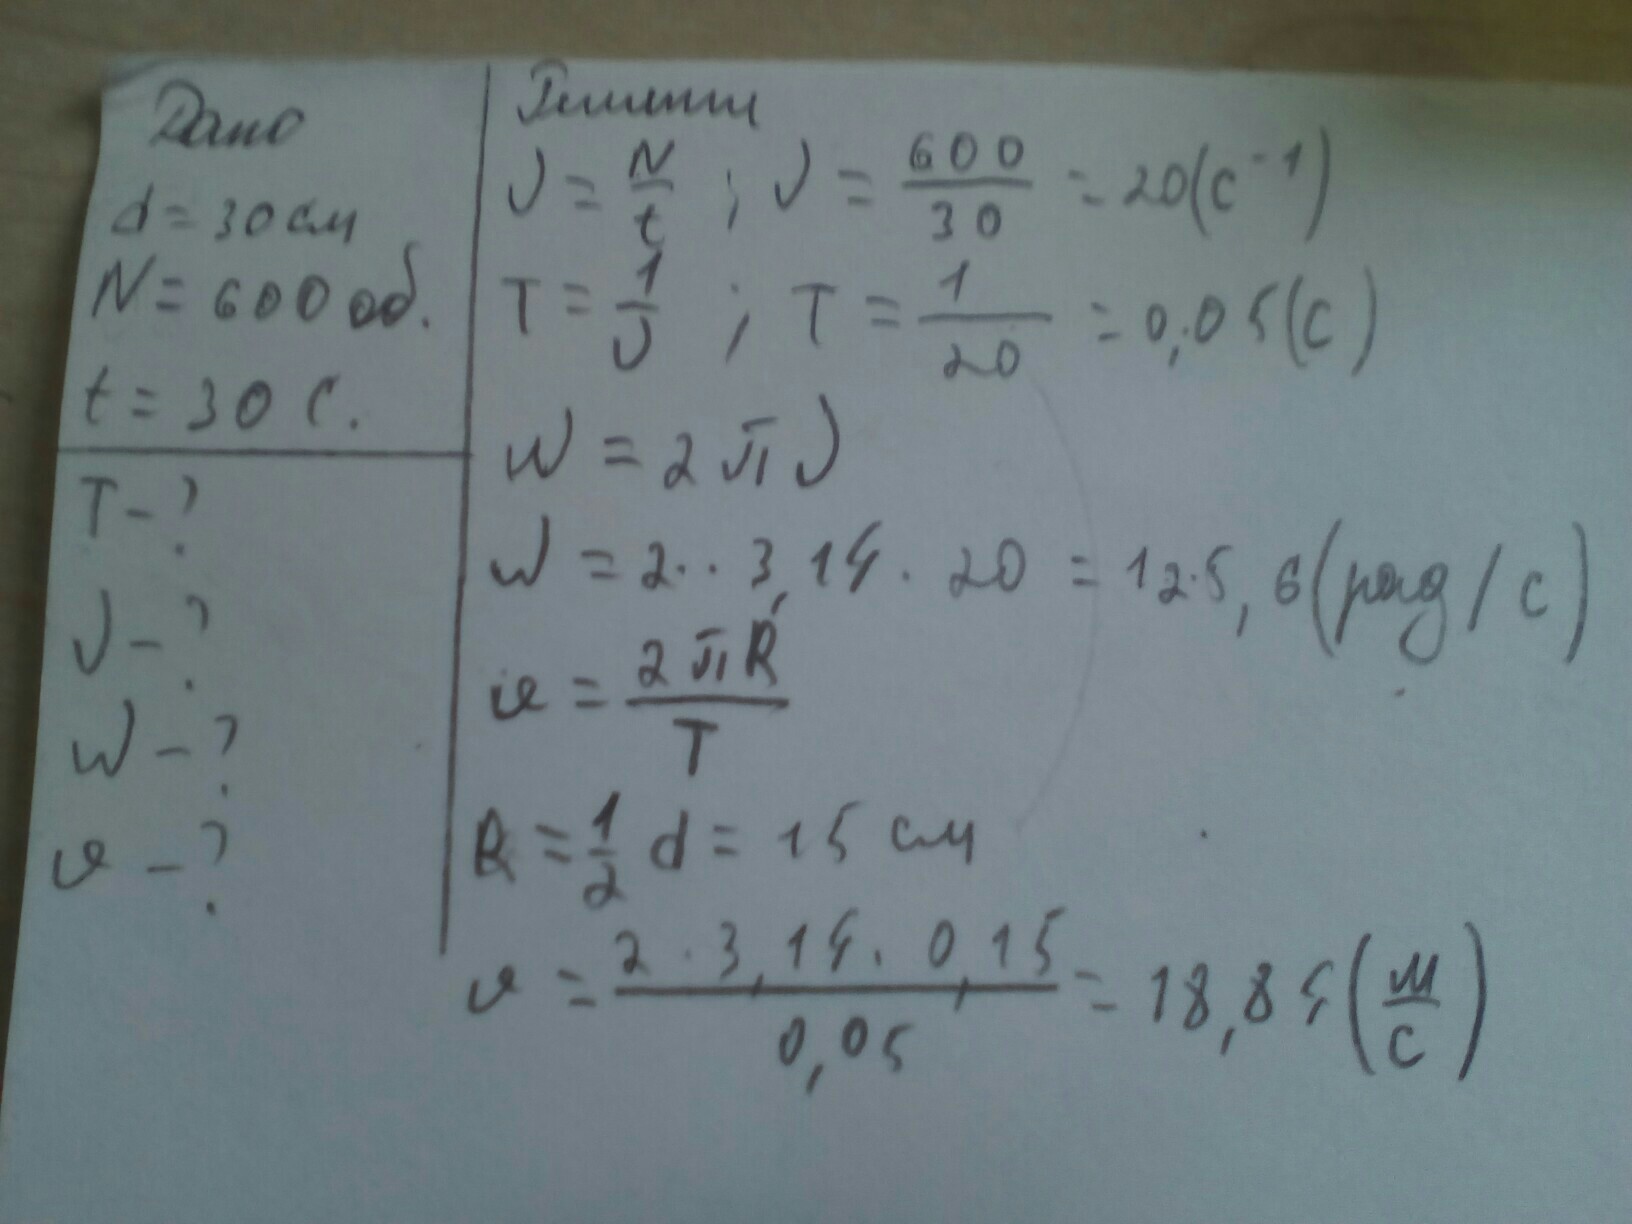 Дано
d = 30 см
N = 600 об.
t = 30 с.
T - ?
ν - ?
W - ?
υ - ?
Решение
ν = N/t ; ν = 600/30 = 20(с⁻¹)
T = 1/ν ; T = 1/20 = 0,05(с)
W = 2πν
W = 2 · · 3,14 · 20 = 125,6(рад/с)
υ = 2πR/T
R = 1/2 d = 15 см
υ = 2 · 3,14 · 0,15/0,05 = 18,84(м/с)